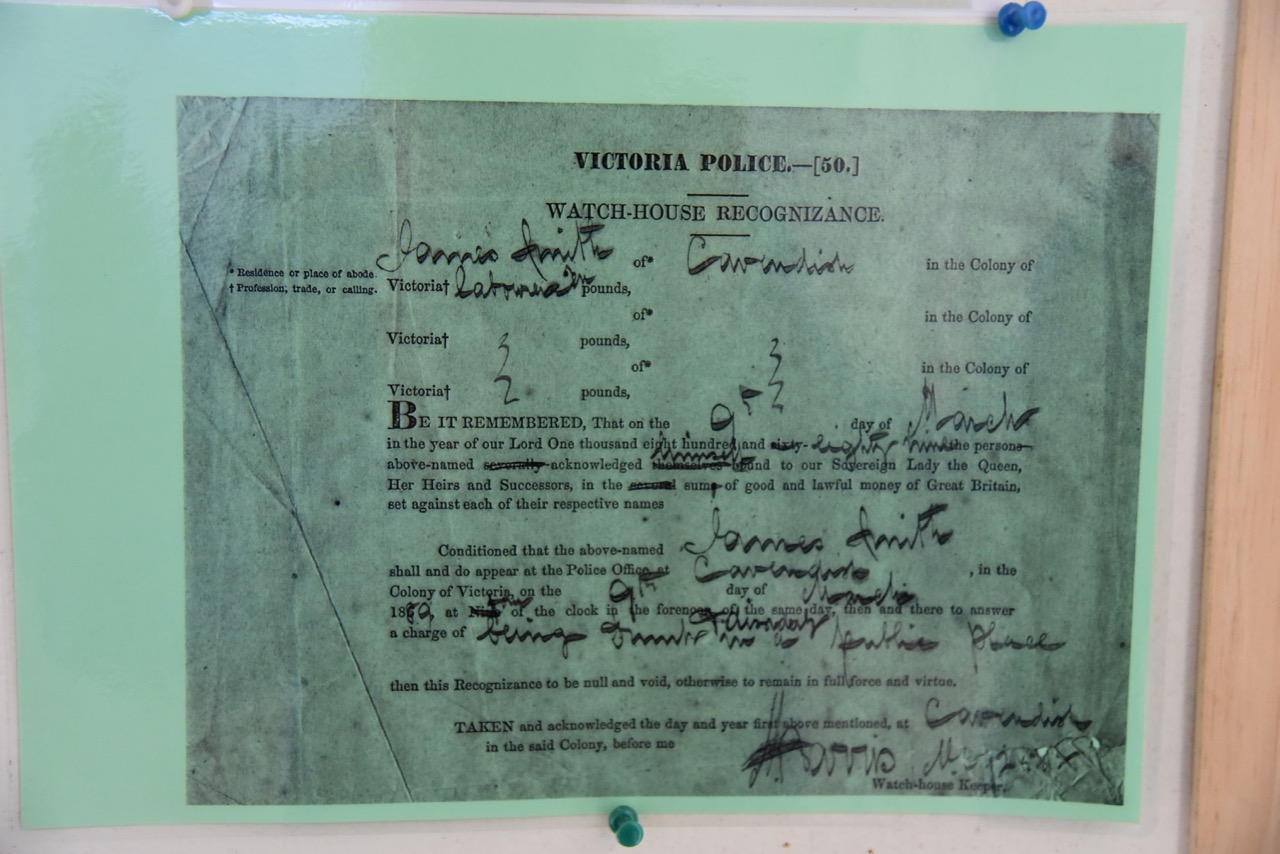 VICTORIA POLICE.—[50.]
WATCH-HOUSE RECOGNIZANCE.
James Smith of* Cavendish in the Colony of
* Residence or place of abode.
† Profession, trade, or calling.
Victoria† pounds,
of* in the Colony of
Victoria† pounds,
of* in the Colony of
Victoria† pounds,
BE IT REMEMBERED, That on the 9th day of March
in the year of our Lord One thousand eight hundred and sixty- eighty nine the persons
above-named severally acknowledged themselves himself bound to our Sovereign Lady the Queen,
Her Heirs and Successors, in the several sums of good and lawful money of Great Britain,
set against each of their respective names
Conditioned that the above-named James Smith
shall and do appear at the Police Office at Cavendish, in the
Colony of Victoria, on the 9th day of March
1889, at of the clock in the forenoon of the same day, then and there to answer
a charge of being drunk in a public place
then this Recognizance to be null and void, otherwise to remain in full force and virtue.
TAKEN and acknowledged the day and year first above mentioned, at Cavendish
in the said Colony, before me
Watch-house Keeper.